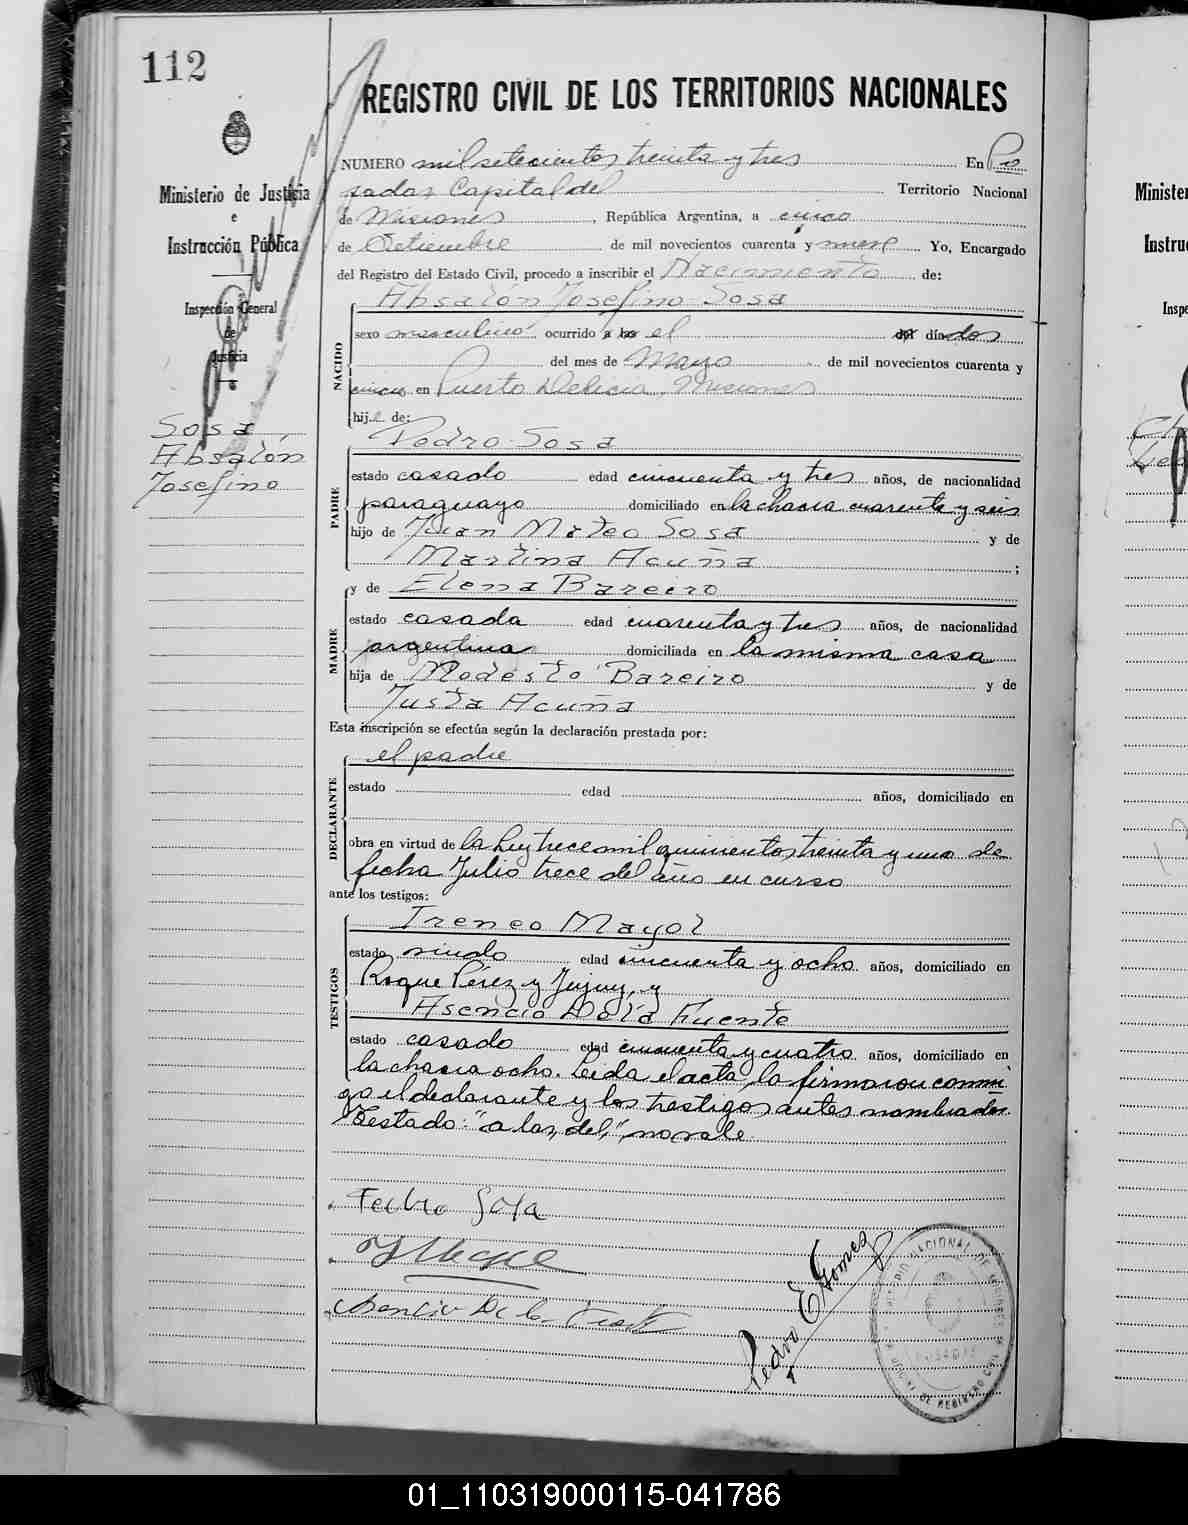 112
REGISTRO CIVIL DE LOS TERRITORIOS NACIONALES
Ministerio de Justicia
e
Instrucción Pública
Inspección General
de
Justicia
Sosa
Absalón
Josefino
NUMERO mil setecientos treinta y tres En Po
sadas Capital del Territorio Nacional
de Misiones, República Argentina, a cinco
de Setiembre de mil novecientos cuarenta y nueve Yo, Encargado
del Registro del Estado Civil, procedo a inscribir el Nacimiento de:
Absalón Josefino Sosa
NACIDO
sexo masculino ocurrido a las el del día dos
del mes de Mayo de mil novecientos cuarenta y
cinco en Puerto Delicia, Misiones
hij o de:
Pedro Sosa
PADRE
estado casado edad cincuenta y tres años, de nacionalidad
paraguayo domiciliado en la chacra cuarenta y seis
hijo de Juan Mateo Sosa y de
Martina Acuña ;
y de Elena Bareiro
MADRE
estado casada edad cuarenta y tres años, de nacionalidad
argentina domiciliada en la misma casa
hija de Modesto Bareiro y de
Justa Acuña
Esta inscripción se efectúa según la declaración prestada por:
el padre
DECLARANTE
estado edad años, domiciliado en
obra en virtud de la Ley trece mil quinientos treinta y uno de
fecha Julio trece del año en curso
ante los testigos:
Ireneo Mayol
TESTIGOS
estado viudo edad cincuenta y ocho años, domiciliado en
Roque Pérez y Jujuy, y
Asencio De la Fuente
estado casado edad cincuenta y cuatro años, domiciliado en
la chacra ocho. Leida el acta la firmaron conmi
go el declarante y los testigos antes nombrados.
Testado: "a las, del", no vale.
Pedro Sosa
Asencio De la Fuente
Pedro E Gomes
01_110319000115-041786